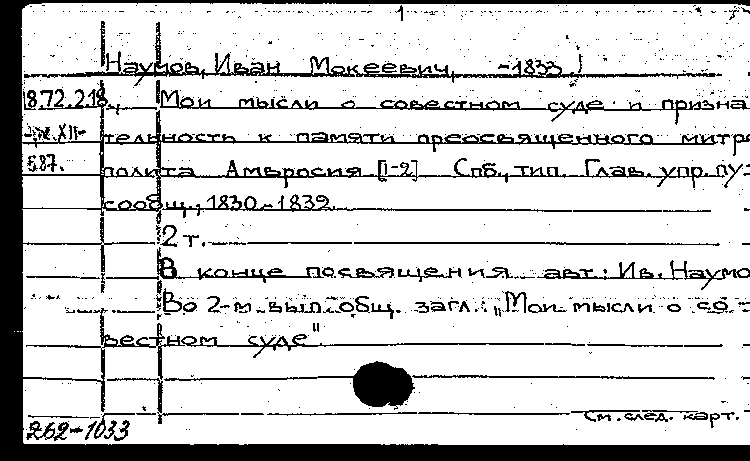 1
Наумов, Иван Мокеевич, -1833)
18.72.2.18., Мои мысли о совестном суде и призна
тельность к памяти преосвященного митро
587. полита Амвросия [1-2] Спб., тип. Глав. упр. пу-
сообщ., 1830-1839.
2 т.
В конце посвящения авт.: Ив. Наумо
Во 2-м вып. общ. загл.: „Мои мысли о со-
вестном суде"
См. след. карт.
262-1033